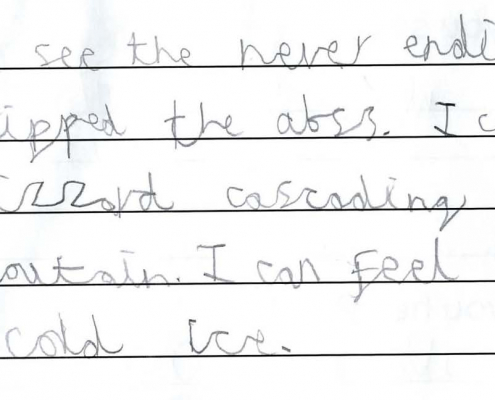 see the never endi
ipped the abss. I c
izzard cascading
outain. I can feel
cold ice.